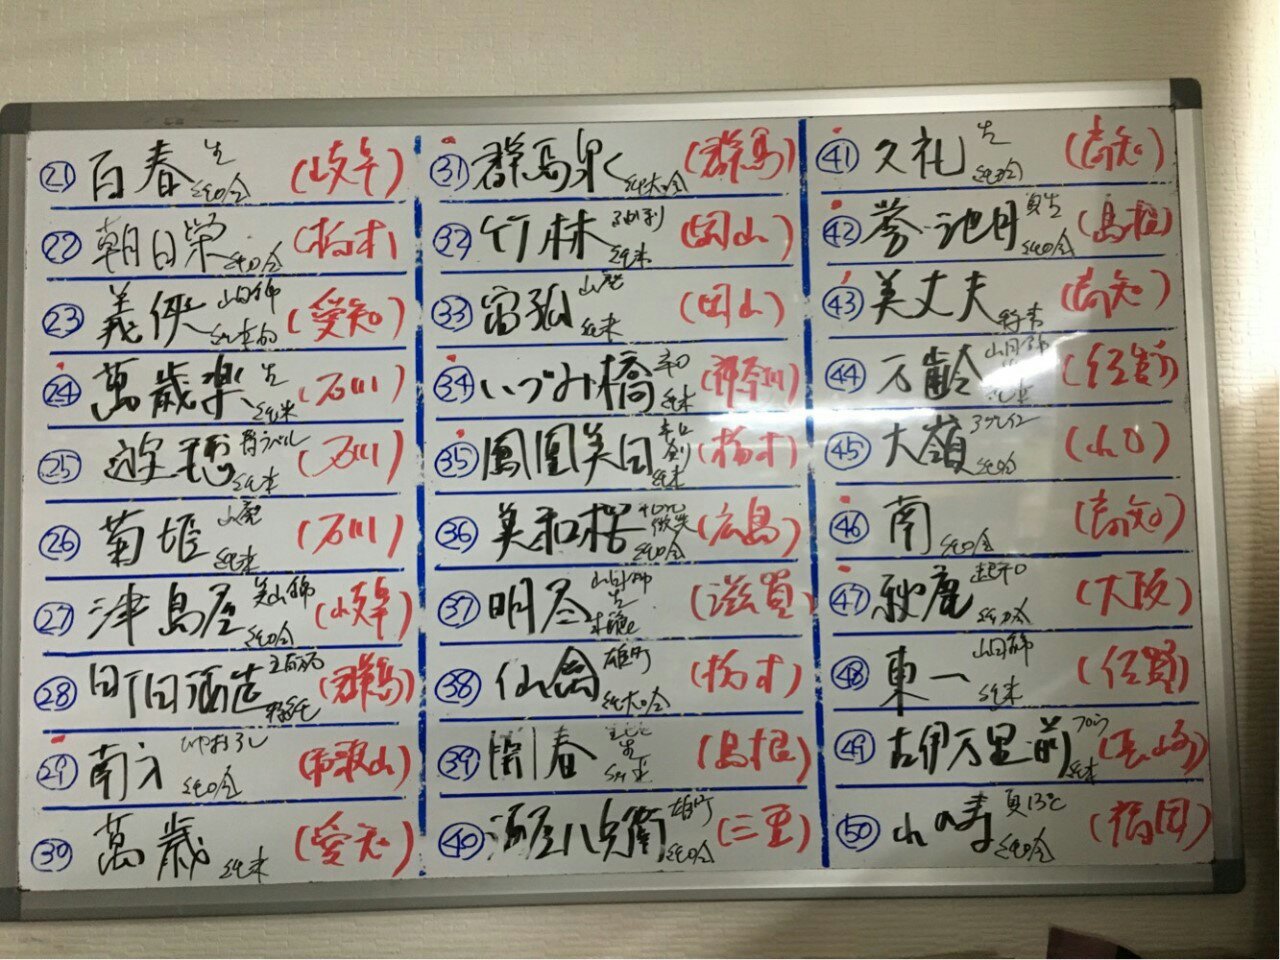 ㉑ 百春 生 純吟 (岐阜)
㉒ 朝日栄 純吟 (栃木)
㉓ 義侠 山田錦 (愛知)
㉔ 萬歳楽 生 純米 (石川)
㉕ 遊穂 青ラベル 純米 (石川)
㉖ 菊姫 山廃 純米 (石川)
㉗ 津島屋 美山錦 純吟 (岐阜)
㉘ 町田酒造 五百万石 特純 (群馬)
㉙ 南方 純吟 (和歌山)
㉚ 萬歳 純米 (愛知)
㉛ 群馬泉 純大吟 (群馬)
㉜ 竹林 純米 (岡山)
㉝ 宙狐 山廃 純米 (岡山)
㉞ いづみ橋 辛口 純米 (神奈川)
㉟ 鳳凰美田 辛口 純米 (栃木)
㊱ 美和桜 純吟 (広島)
㊲ 明尽 山田錦 生 (滋賀)
㊳ 仙禽 雄町 純大吟 (栃木)
㊴ 開春 (島根)
㊵ 酒屋八兵衛 雄町 純吟 (三重)
㊶ 久礼 生 純吟 (高知)
㊷ 誉池月 純吟 (島根)
㊸ 美丈夫 (高知)
㊹ 万齢 山田錦 純米 (佐賀)
㊺ 大嶺 3グレイン 純吟 (山口)
㊻ 南 純吟 (高知)
㊼ 秋鹿 超辛口 (大阪)
㊽ 東一 山田錦 純米 (佐賀)
㊾ 古伊万里前 純米
㊿ 山の寿 夏13℃ 純吟 (福岡)